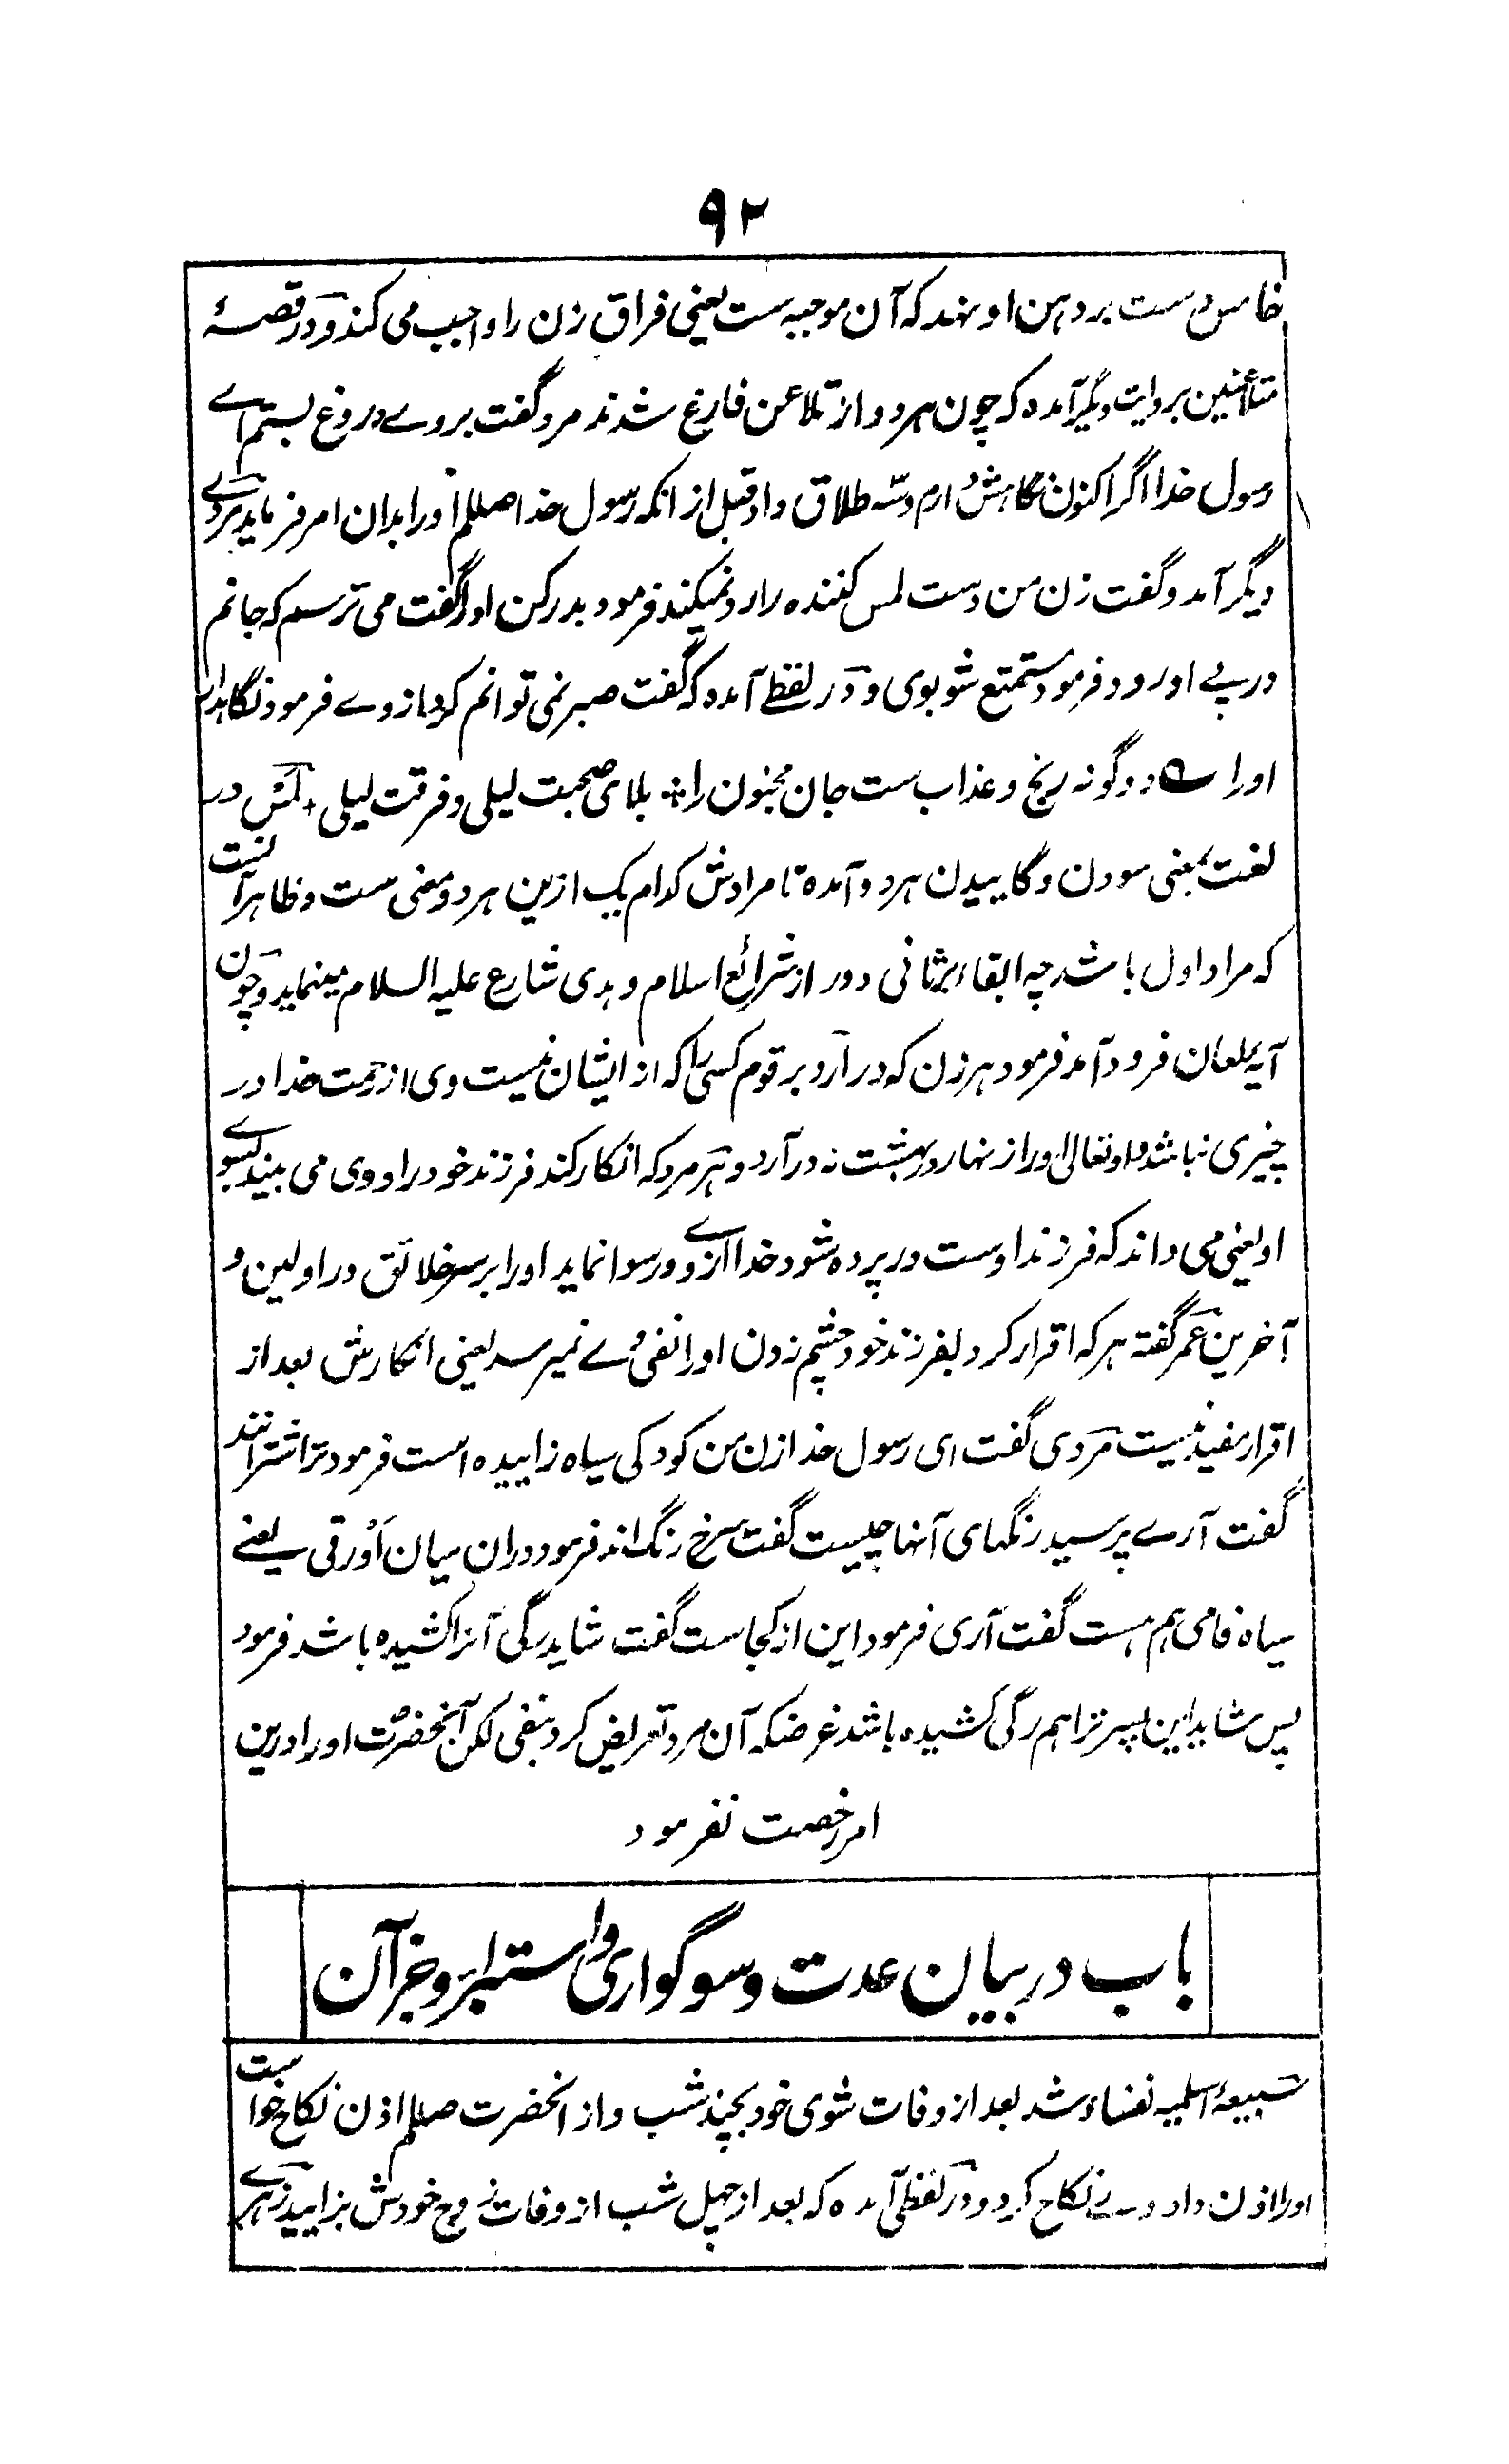 ۹۲
خامس دست بر دهن او نهد که آن موجبه ست یعنی فراق زن را واجب می کند و در قصۀ
متلاعنین بروایت دیگر آمده که چون هر دو از تلاعن فارغ شدند مرد گفت بروے دروغ بستم اے
رسول خدا اگر اکنون نگاهش دارم و سه طلاق داد قبل از انکه رسول خدا صللم او را بدان امر فرماید مردے
دیگر آمد و گفت زن من دست لمس کننده را رد نمیکند فرمود بدر کن او را گفت می ترسم که جانم
در پے او رود فرمود متمتع شو بوی و در لفظے آمده که گفت صبر نمی توانم کرد از وے فرمود نگاهدار
او را ے دو گونه رنج و عذاب ست جان مجنون را ÷ بلای صحبت لیلی و فرقت لیلی + لمس در
لغت بمعنی سودن و گاییدن هر دو آمده تا مرادش کدام یک ازین هر دو معنی ست و ظاهر آنست
که مراد اول باشد چه ابقاء بر ثانی دور از شرائع اسلام و هدی شارع علیه السلام مینماید و چون
آیه لعان فرود آمد فرمود هر زن که در آرد بر قوم کسی را که از ایشان نیست وی از رحمت خدا در
چیزی نباشد و او تعالی او را زنهار در بهشت نه در آرد و هر مرد که انکار کند فرزند خود را و وی می بیند بسوے
او یعنی می داند که فرزند اوست در پرده شود خدا از وے و رسوا نماید او را بر سر خلائق در اولین و
آخرین عمر گفته هر که اقرار کرد بفرزند خود چشم زدن او را نفی وے نمیرسد یعنی انکارش بعد از
اقرار مفید نیست مردی گفت ای رسول خدا زن من کودکی سیاه زاییده است فرمود ترا شترانند
گفت آرے پرسید رنگهای آنها چیست گفت سرخ رنگ اند فرمود دران میان اَوْرَقی یعنے
سیاه فامی هم هست گفت آری فرمود این از کجاست گفت شاید رگی آنرا کشیده باشد فرمود
پس شاید این پسر ترا هم رگی کشیده باشد غرضکه آن مرد تعریض کرد بنفی لکن آنحضرت او را درین
امر رخصت نفرمود
باب در بیان عدت و سوگواری و استبراء و جز آن
سبیعۀ اسلمیه نفساء شد بعد از وفات شوی خود بچند شب و از انحضرت صللم اذن نکاح خواست
او را اذن داد و وے نکاح کرد و در لفظی آمده که بعد از چهل شب از وفات زوج خودش بزایید زهرے